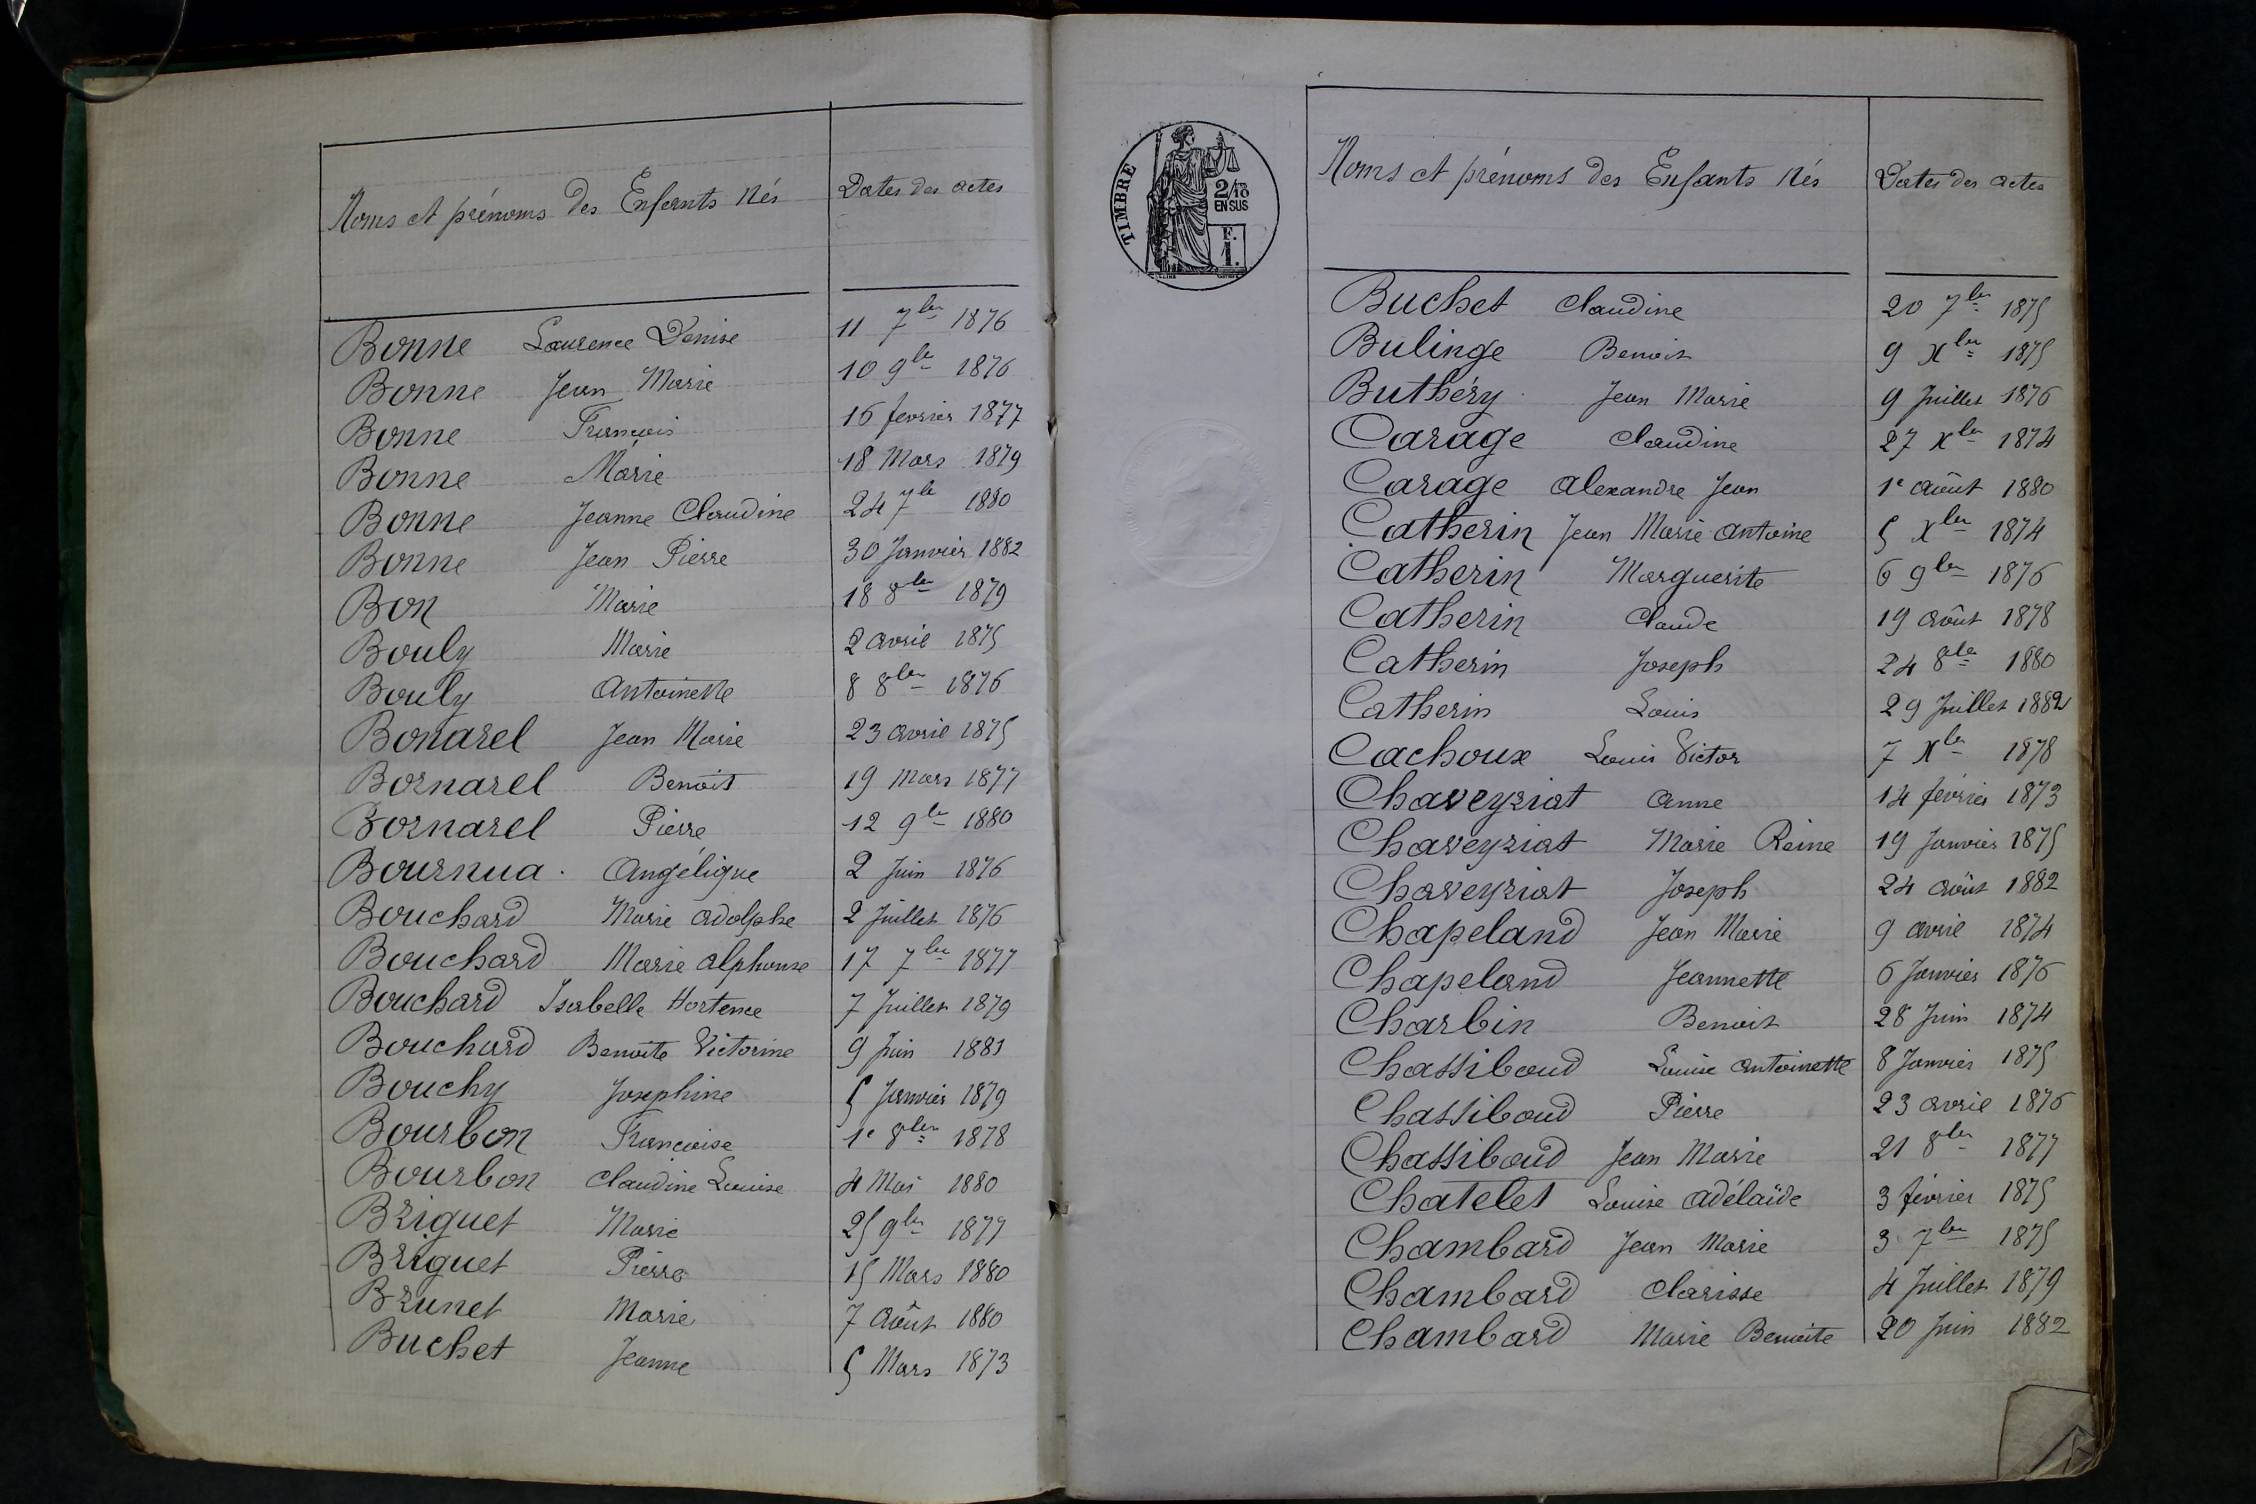 Noms et prénoms des Enfants Nés Dates des actes
Bonne Laurence Denise 11 7bre 1876
Bonne Jean Marie 10 9bre 1876
Bonne François 16 février 1877
Bonne Marie 18 Mars 1879
Bonne Jeanne Claudine 24 7bre 1880
Bonne Jean Pierre 30 Janvier 1882
Bon Marie 18 8bre 1879
Bouly Marie 2 avril 1875
Bouly Antoinette 8 8bre 1876
Bonarel Jean Marie 23 avril 1875
Bornarel Benoit 19 Mars 1877
Bornarel Pierre 12 9bre 1880
Bournua. Angélique 2 Juin 1876
Bouchard Marie Adolphe 2 Juillet 1876
Bouchard Marie Alphonse 17 7bre 1877
Bouchard Isabelle Hortence 7 Juillet 1879
Bouchard Benoite Victorine 9 Juin 1881
Bouchy Joséphine 5 Janvier 1879
Bourbon Françoise 1e 8bre 1878
Bourbon Claudine Louise 4 Mai 1880
Briguet Marie 25 9bre 1877
Briguet Pierre 15 Mars 1880
Brunet Marie 7 Août 1880
Buchet Jeanne 5 Mars 1873
TIMBRE
2/10
EN SUS
F.
1.
Noms et prénoms des Enfants Nés Dates des actes
Buchet Claudine 20 7bre 1875
Bulinge Benoit 9 Xbre 1875
Buthéry Jean Marie 9 Juillet 1876
Carage Claudine 27 Xbre 1874
Carage Alexandre Jean 1e Août 1880
Catherin Jean Marie Antoine 5 Xbre 1874
Catherin Marguerite 6 9bre 1876
Catherin Claude 19 Août 1878
Catherin Joseph 24 8bre 1880
Catherin Louis 29 Juillet 1882
Cachoux Louis Victor 7 Xbre 1878
Chaveyriat Anne 14 février 1873
Chaveyriat Marie Reine 19 Janvier 1875
Chaveyriat Joseph 24 Août 1882
Chapeland Jean Marie 9 avril 1874
Chapeland Jeannette 6 Janvier 1876
Charbin Benoit 28 Juin 1874
Chassiboud Louise Antoinette 8 Janvier 1875
Chassiboud Pierre 23 avril 1876
Chassiboud Jean Marie 21 8bre 1877
Chatelet Louise Adélaïde 3 février 1875
Chambard Jean Marie 3 7bre 1875
Chambard Clarisse 4 Juillet 1879
Chambard Marie Benoite 20 Juin 1882